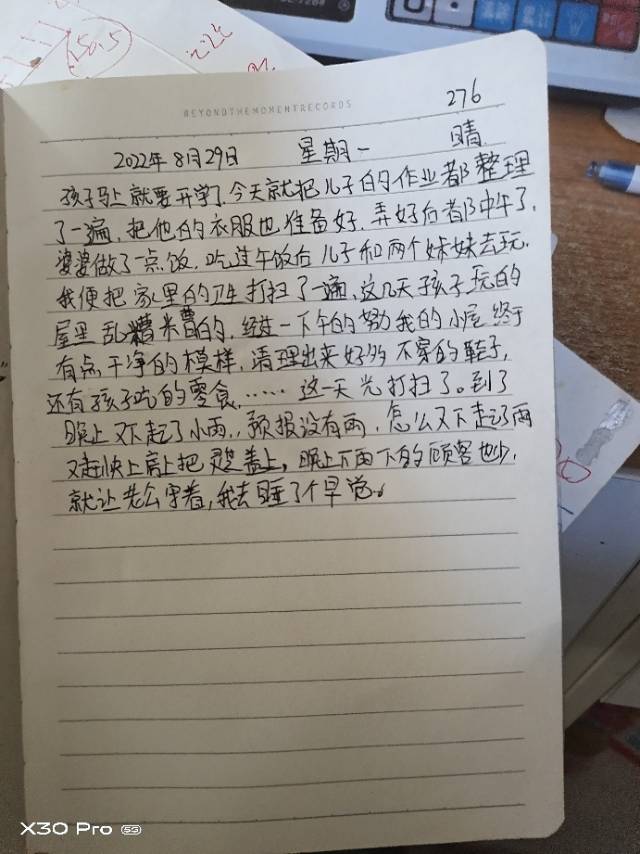 BEYONDTHEMOMENTRECORDS
276
2022年8月29日 星期一 晴
孩子马上就要开学了.今天就把儿子的作业都整理
了一遍.把他的衣服也准备好.弄好后都中午了.
婆婆做了一点饭.吃过午饭后儿子和两个妹妹去玩.
我便把家里的卫生打扫了一遍.这几天孩子玩的
屋里乱糟糟的.经过一下午的努我的小屋终于
有点干净的模样,清理出来好多不穿的鞋子,
还有孩子吃的零食.…… 这一天光打扫了。到了
晚上又下起了小雨..预报没有雨.怎么又下起了雨
又赶快上房上把 盖上,晚上下雨下的顾客也少.
就让老公守着,我去睡了个早觉。
X30 Pro 5G